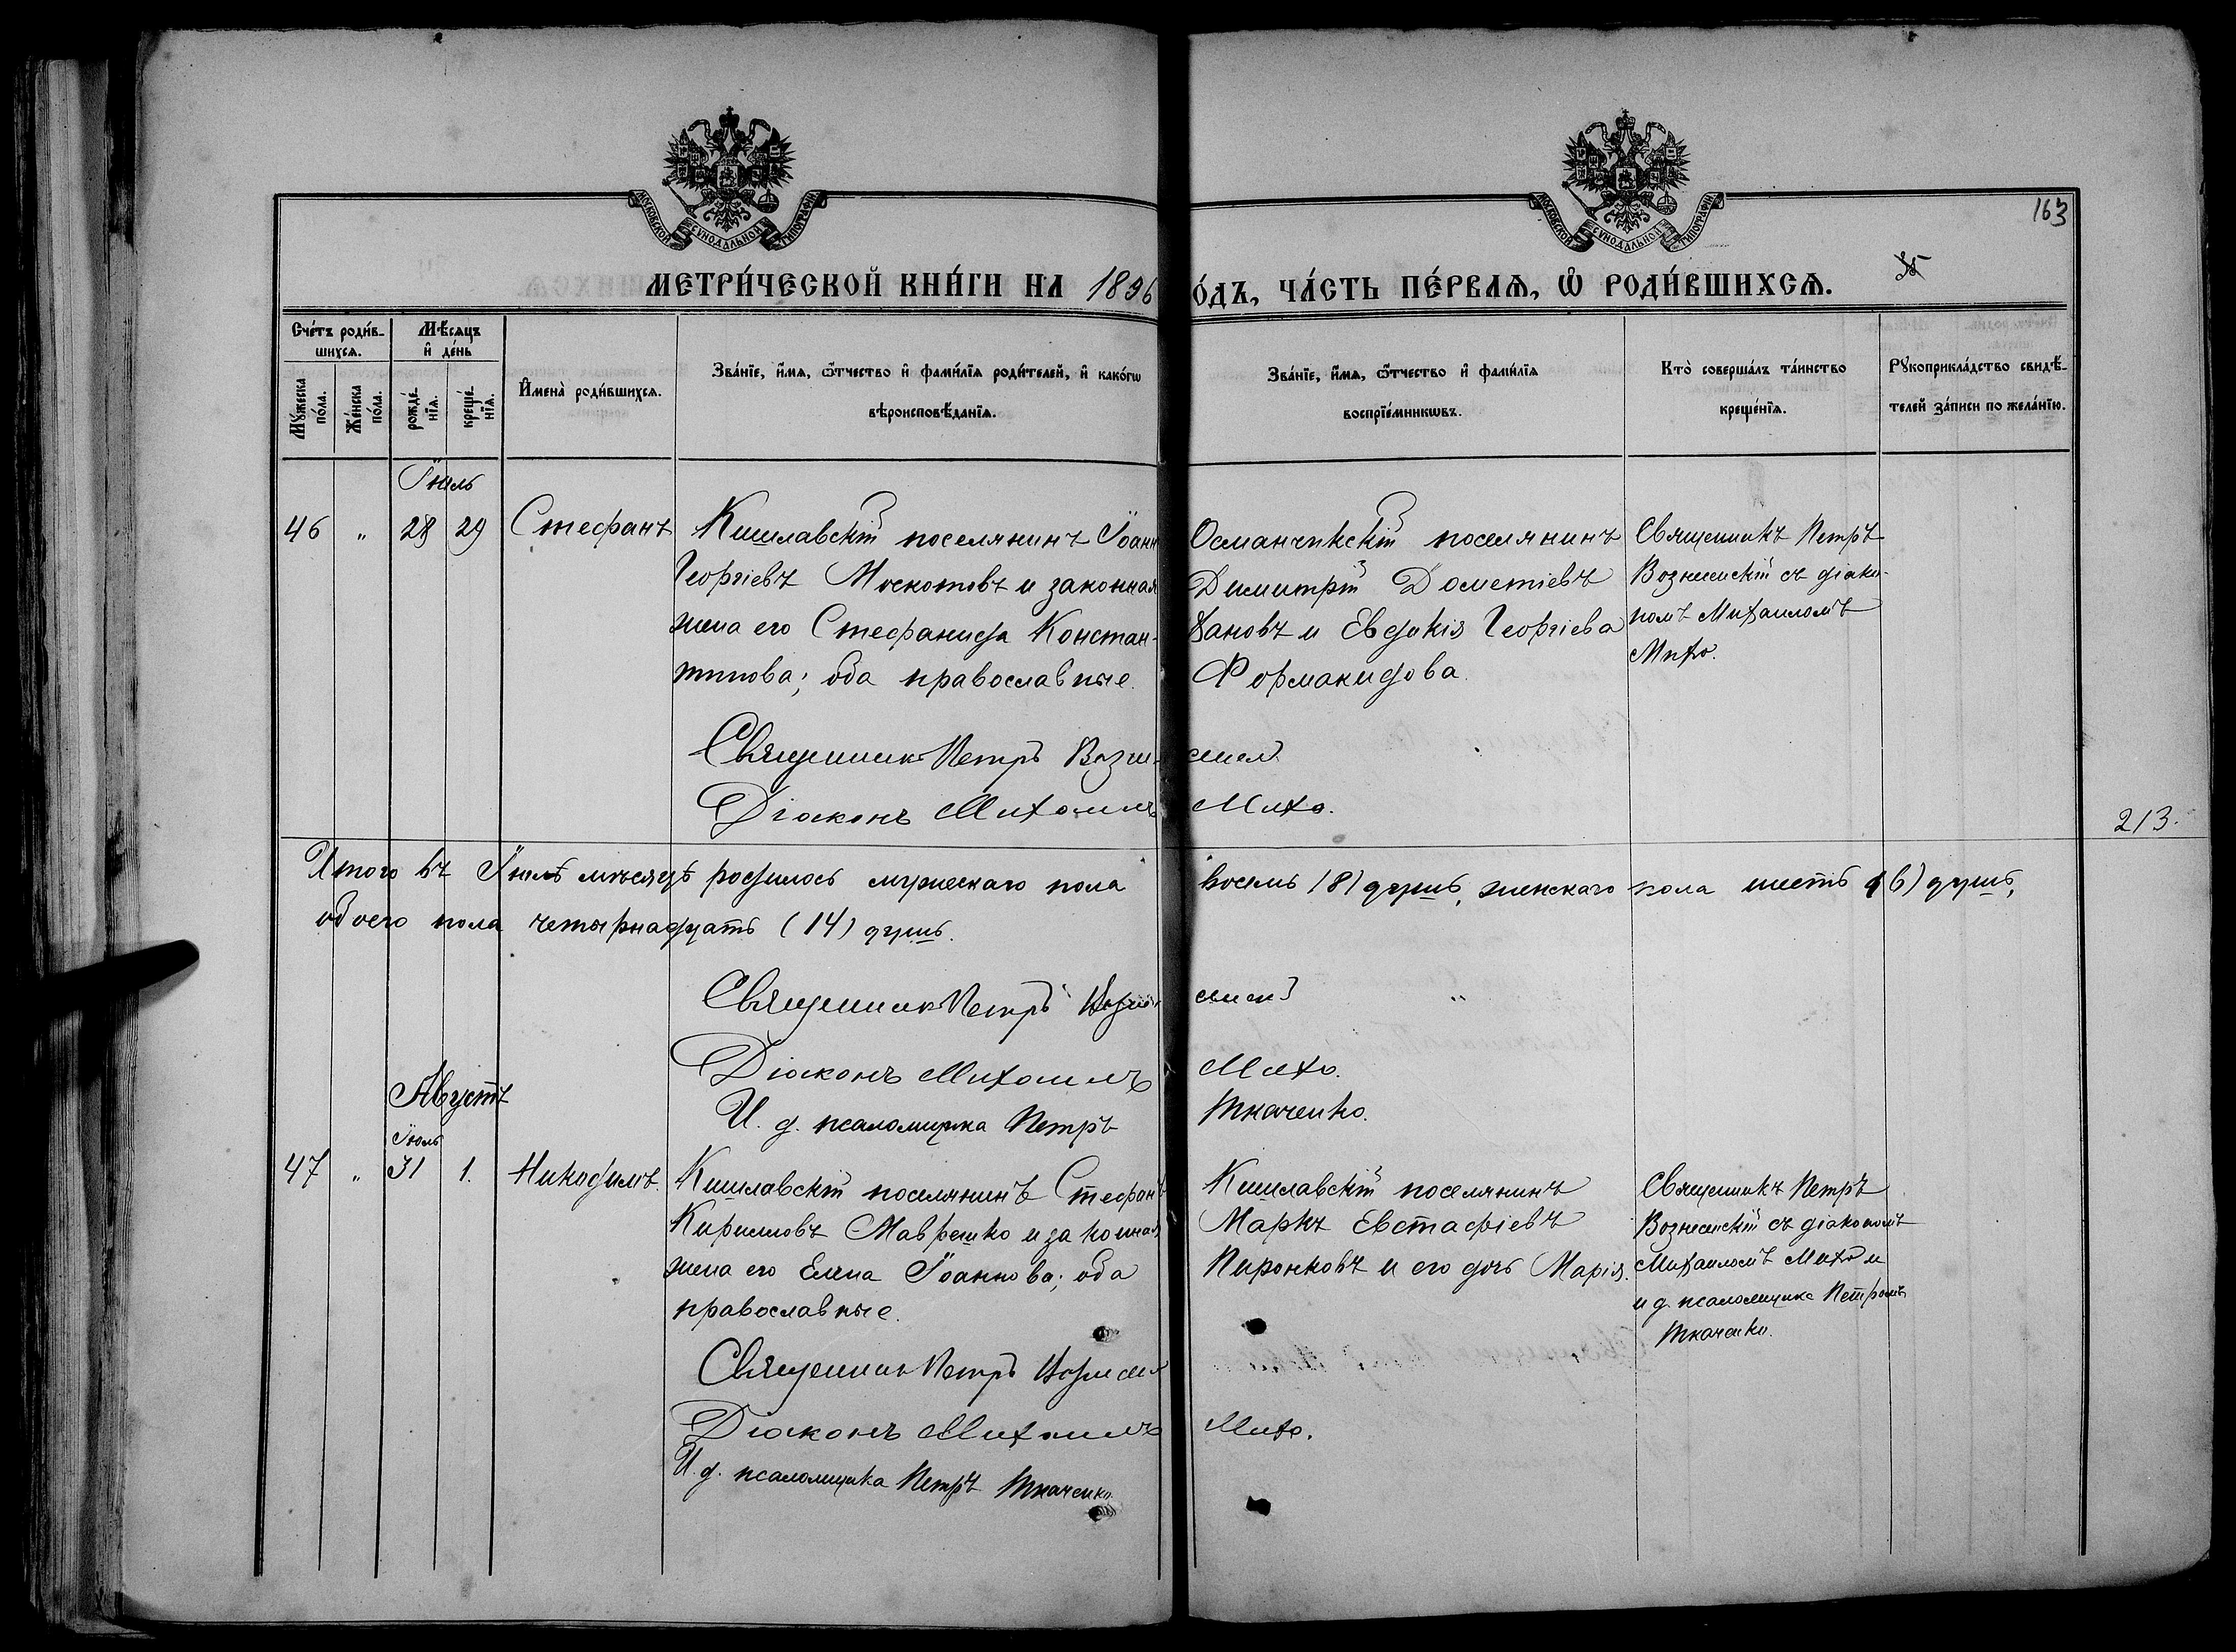 163
МОСКОВСКОЙ СѴНОДАЛЬНОЙ ТИПОГРАФІИ
МОСКОВСКОЙ СѴНОДАЛЬНОЙ ТИПОГРАФІИ
МЕТРИ́ЧЕСКОЙ КНИ́ГИ НА 1896
О́ДЪ, ЧА́СТЬ ПЕ́РВАѦ, Ѡ҆ РОДИ́ВШИХСѦ.
Сче́тъ роди́в-
шихсѧ.
Мꙋ́жеска по́ла.
Же́нска по́ла.
Мѣ́сѧцъ
и҆ де́нь
рожде́-
нїѧ.
креще́-
нїѧ.
И҆мена̀ роди́вшихсѧ.
Зва́нїе, и҆́мѧ, ѻ҆́тчество и҆ фамѝлїѧ роди́телей, и҆ како́гѡ
вѣроисповѣ́данїѧ.
Зва́нїе, и҆́мѧ, ѻ҆́тчество и҆ фами́лїѧ
воспрїе́мникѡвъ.
Кто̀ соверша́лъ та́инство
креще́нїѧ.
Рꙋкоприкла́дство свидѣ́-
телей за́писи по жела́нїю.
Іюль
46 " 28 29 Стефанъ
Кишлавскій поселянинъ Іоаннъ
Георгіевъ Москотовъ и законная
жена его Стефанида Констан-
тинова; оба православные.
Османчикскій поселянинъ
Димитрій Дометіевъ
Вановъ и Евдокія Георгіева
Формакидова.
Священникъ Петръ
Вознесенскій съ діако-
номъ Михаиломъ
Михо.
Священникъ Петръ Возне-
сенскій
Діаконъ Михаилъ Михо.
213.
Итого въ Іюлѣ мѣсяцѣ родилось мужескаго пола восемь (8) душъ, женскаго пола шесть (6) душъ,
обоего пола четырнадцать (14) душъ.
Священникъ Петръ Вознесенскій
Діаконъ Михаилъ Михо.
И. д. псаломщика Петръ Ткаченко.
Августъ
Іюль
47 " 31 1. Никодимъ.
Кишлавскій поселянинъ Стефанъ
Кирилловъ Маврешко и законная
жена его Елена Іоаннова; оба
православные.
Кишлавскій поселянинъ
Маркъ Евстафіевъ
Пиронковъ и его дочь Марія.
Священникъ Петръ
Вознесенскій съ діакономъ
Михаиломъ Михо и
и д. псаломщика Петромъ
Ткаченко.
Священникъ Петръ Вознесенскій
Діаконъ Михаилъ Михо.
И. д. псаломщика Петръ Ткаченко